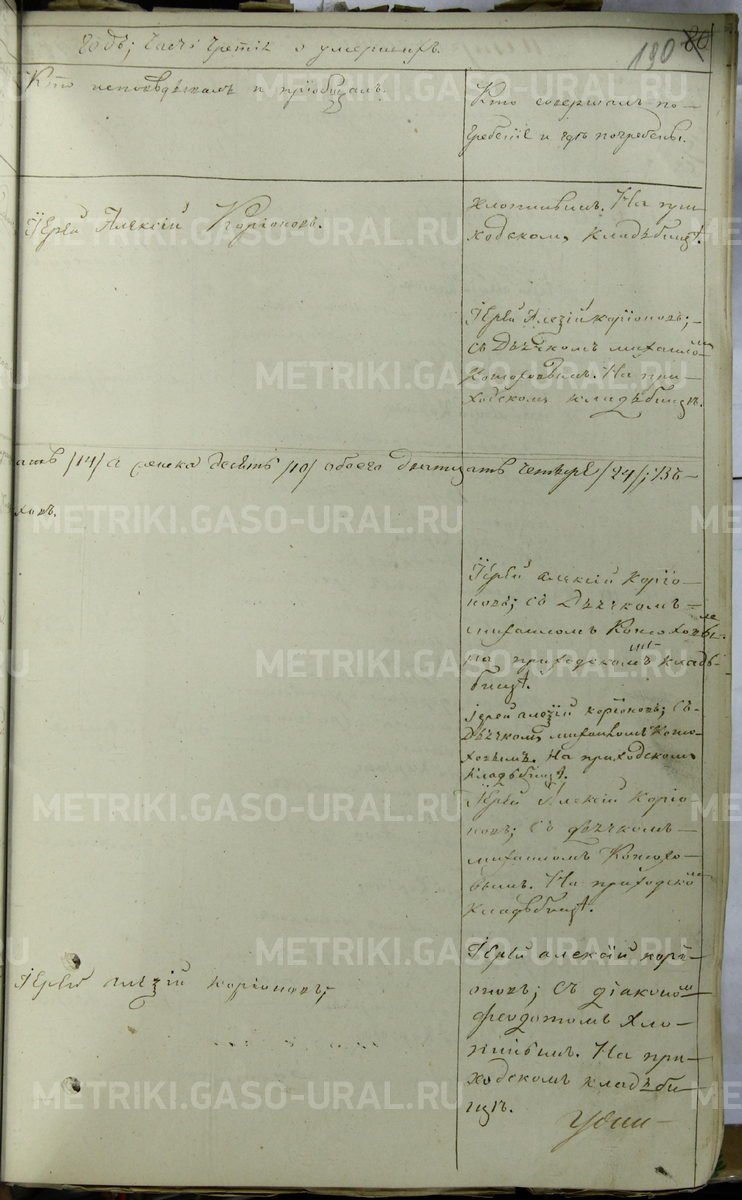 годъ; часть третiя о умершихъ.
190 80
Кто исповѣдывалъ и прiобщалъ.
Кто совершалъ по-
гребенiе и гдѣ погребены.
Iерей Алексiй Корiоновъ.
Хлопинымъ. На при-
ходскомъ кладъбищѣ.
Iерей Алезiй Корiоновъ;
съ Дьячкомъ михаиломъ
На при-
ходскомъ кладъбищѣ.
/14/ а женска десять /10/ обоего дватцать четыре /24/
Iерей алексiй Корiо-
новъ; съ Дьячкомъ
михаиломъ
на приходскомъ кладъ-
бищѣ.
iерей алезiй корiоновъ; съ
Дьячкомъ михаиломъ
На приходскомъ
кладъбищѣ.
Iерей Алексiй Корiо-
новъ; съ дьячкомъ
михаиломъ
На приходском
кладъбищѣ.
Iерей алезiй корiоновъ;
Iерей алексiй корi-
оновъ; съ дiакономъ
феодотомъ Хло-
пинымъ. На при-
ходскомъ кладъби-
щѣ.
METRIKI.GASO-URAL.RU